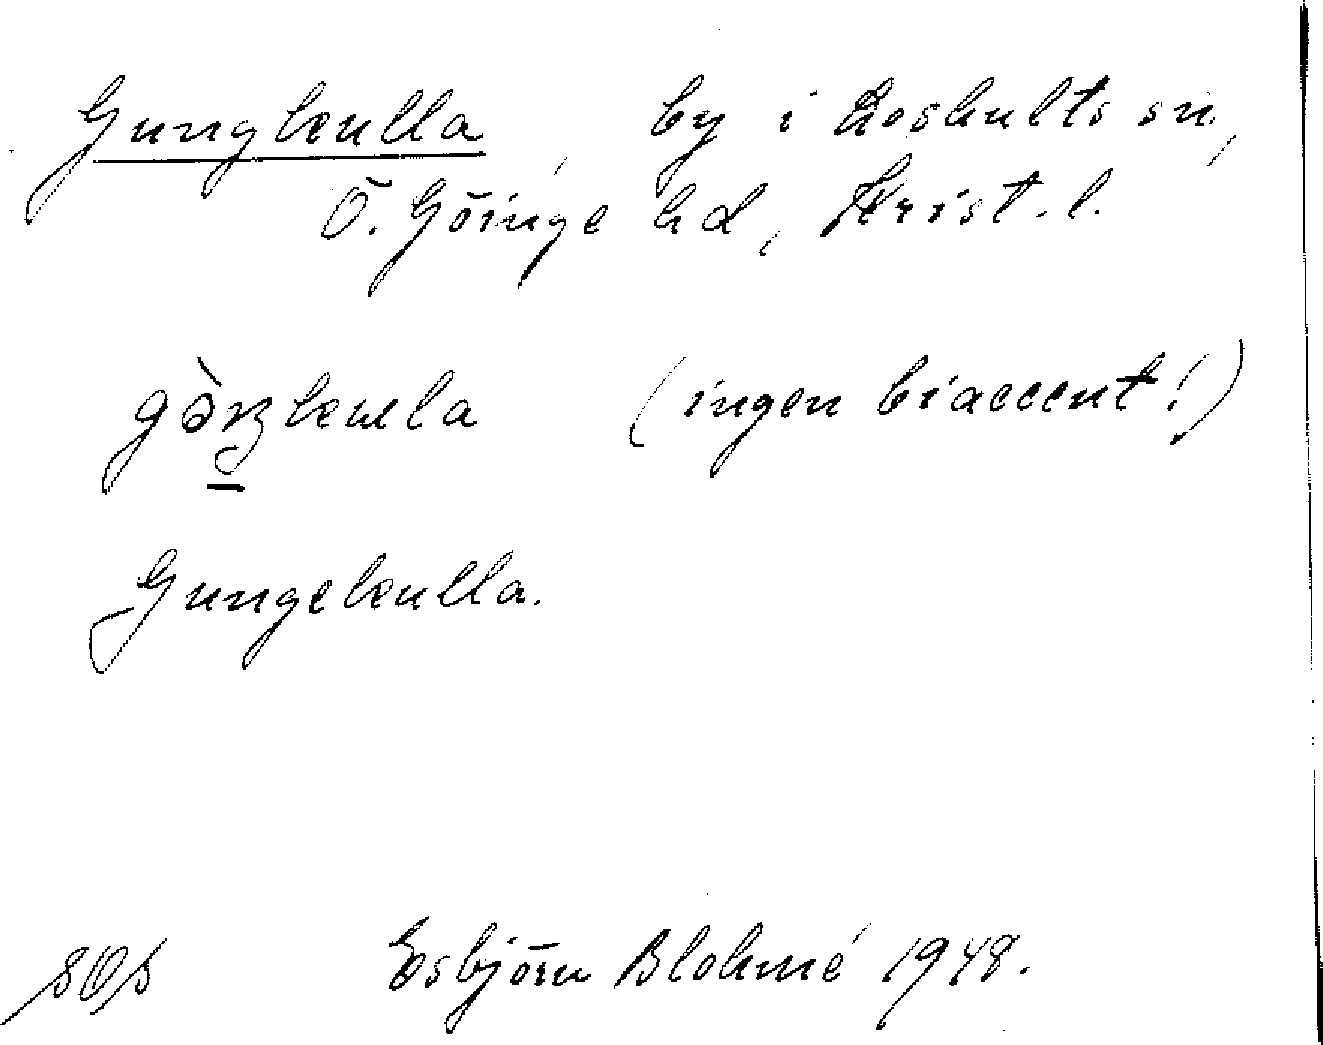 Gungkulla, by i Loshults sn,
Ö. Göinge hd, Krist. l.
(ingen biaccent!)
Gungekulla.
Esbjörn Blohmé 1948.